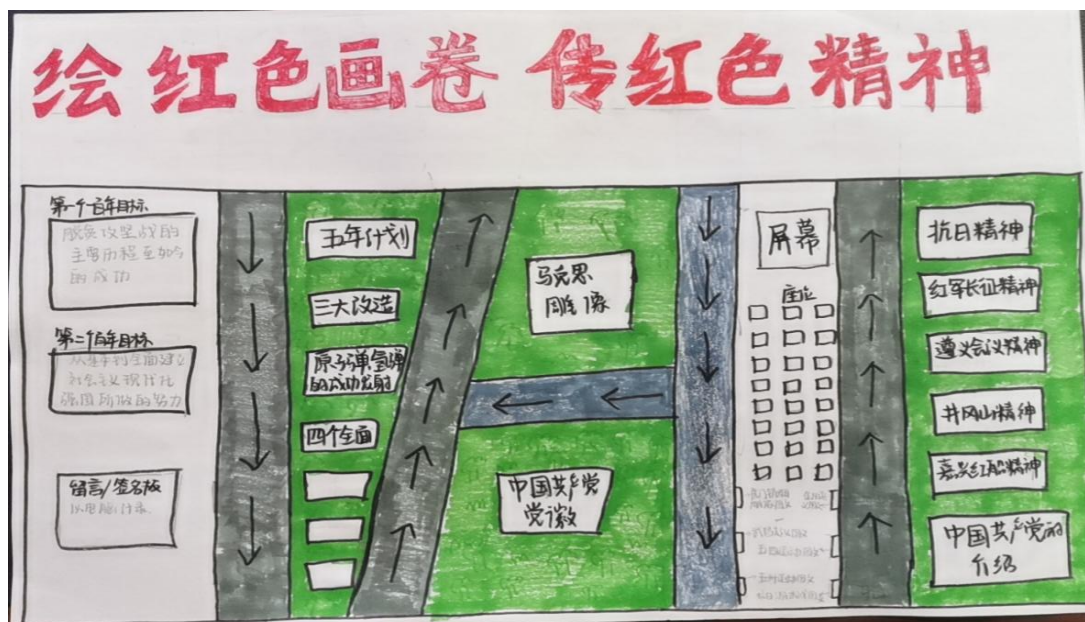 绘红色画卷 传红色精神
第一个百年目标
脱贫攻坚战的
主要历程至如今
的成功
第二个百年目标
从基本到全面建立
社会主义现代化
强国所做的努力
留言/签名板
五年计划
三大改造
原子弹氢弹
的成功发射
四个全面
马克思
雕像
中国共产党
党徽
屏幕
座位
抗日精神
红军长征精神
遵义会议精神
井冈山精神
嘉兴红船精神
中国共产党的
介绍